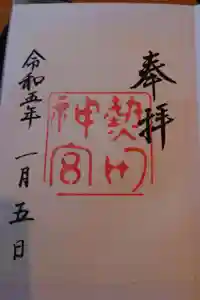 奉拝
熱田神宮
令和五年一月五日